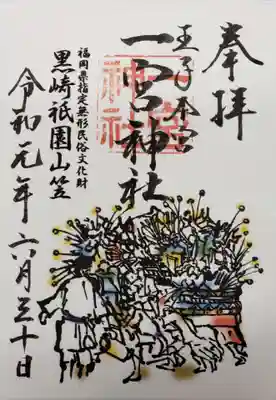 奉拝
王子本宮
一宮神社
福岡県指定無形民俗文化財
黒崎祇園山笠
令和元年六月三十日